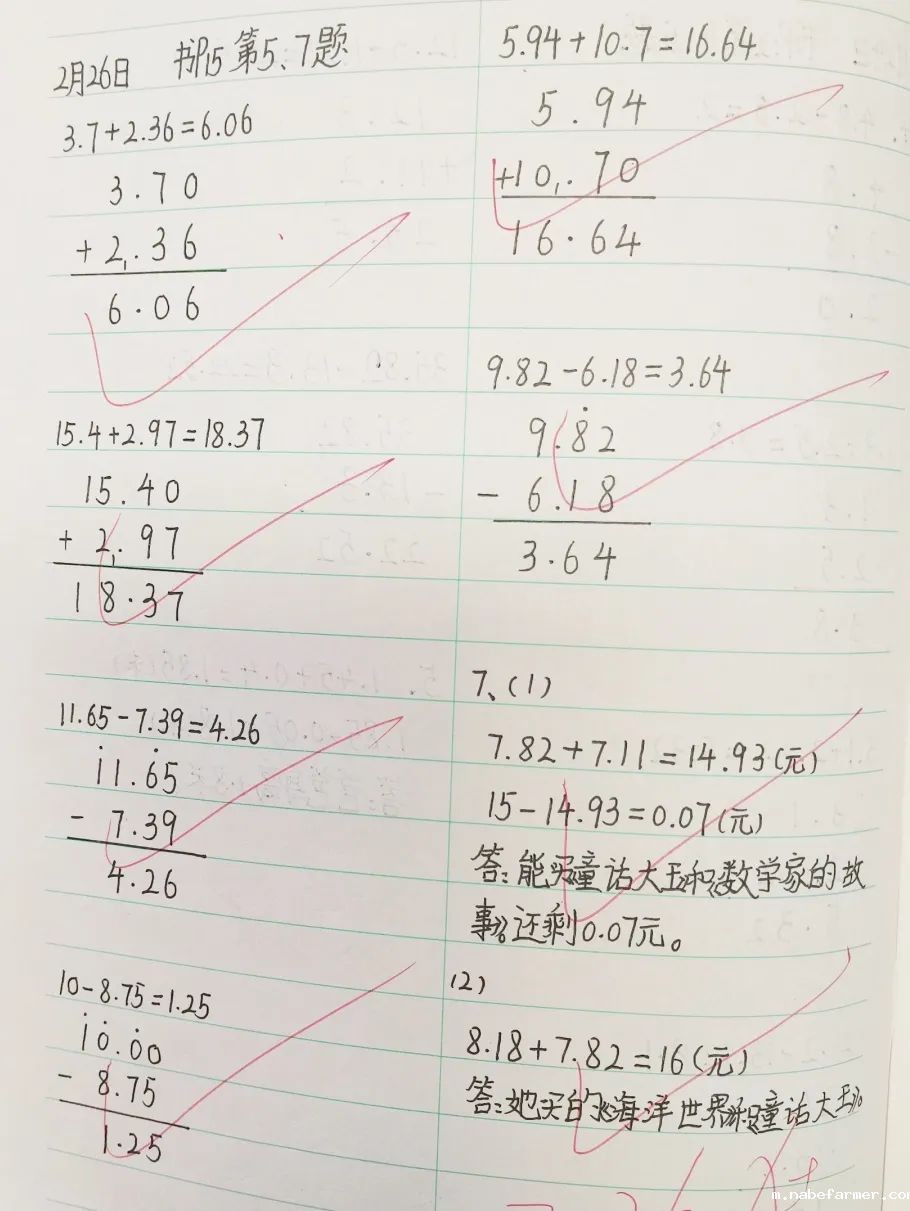 2月26日 书P15 第5、7题
3.7+2.36=6.06
3.70
+2.36
6.06
15.4+2.97=18.37
15.40
+ 2.97
18.37
11.65-7.39=4.26
11.65
- 7.39
4.26
10-8.75=1.25
10.00
- 8.75
1.25
5.94+10.7=16.64
5.94
+10.70
16.64
9.82-6.18=3.64
9.82
- 6.18
3.64
7、(1)
7.82+7.11=14.93(元)
15-14.93=0.07(元)
答:能买童话大王和《数学家的故
事》,还剩0.07元。
(2)
8.18+7.82=16(元)
答:她买的《海洋世界》和《童话大王》。
m.nabefarmer.com